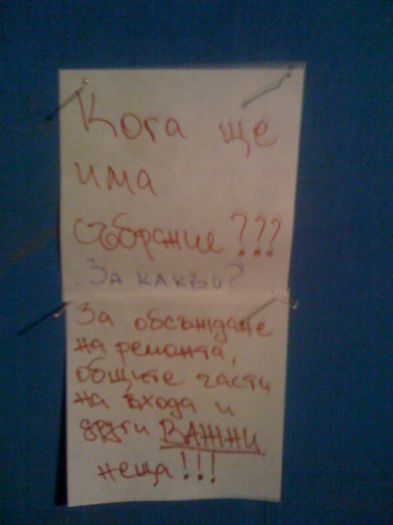 Кога ще
има
събрание???
За какво?
За обсъждане
на ремонта,
общите части
на входа и
други ВАЖНИ
неща!!!